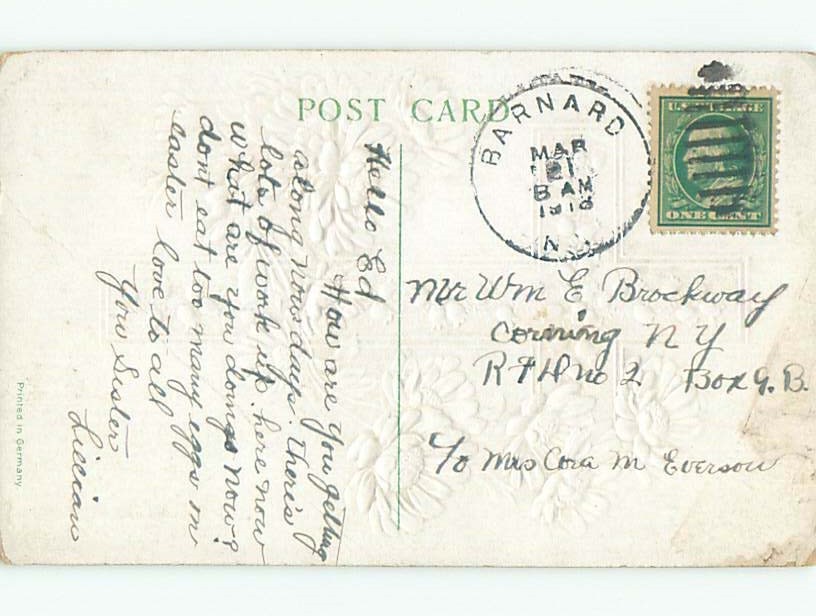 POST CARD
BARNARD
MAR
21
8 AM
1916
N.Y.
U.S. POSTAGE
ONE CENT
Hello Ed
How are you getting
along nowsdays. theris
lots of work up here now
what are you doings now?
dont eat too many eggs on
easter love to all
your Sister
Lillian
Mr Wm E Brockway
Corning N Y
R F D no 2 Box 9. B.
% Mrs Cora M Everson
Printed in Germany